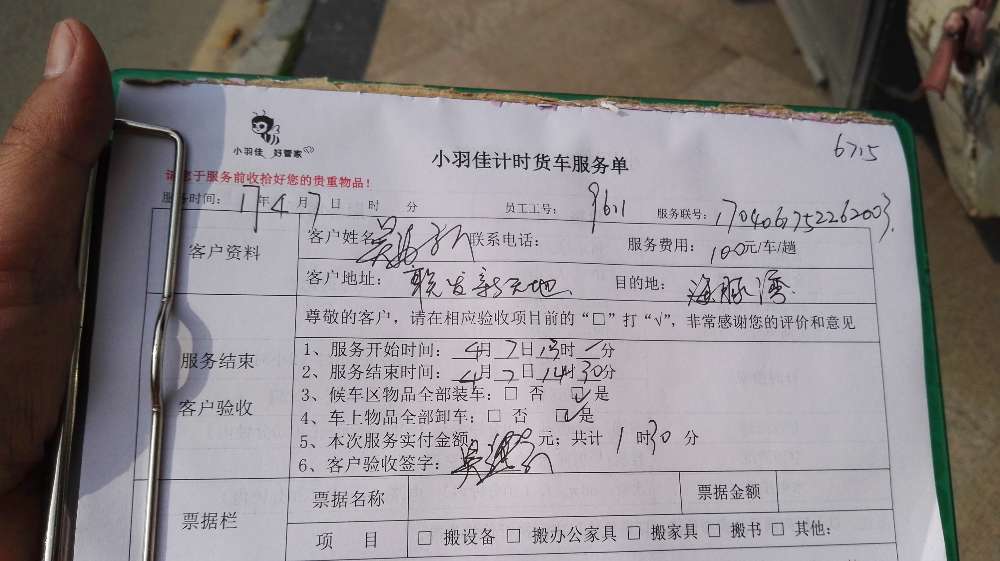 6715
小羽佳 好管家
小羽佳计时货车服务单
请您于服务前收拾好您的贵重物品！
服务时间：17年4月7日 时 分 员工工号：9611 服务联号：170406752262003
客户资料 客户姓名 吴 联系电话： 服务费用：100元/车/趟
客户地址：联发新天地 目的地：海豚湾
尊敬的客户，请在相应验收项目前的“□”打“√”，非常感谢您的评价和意见
服务结束
客户验收
1、服务开始时间：4月7日13时 分
2、服务结束时间：4月7日14时30分
3、候车区物品全部装车：□ 否 ☑是
4、车上物品全部卸车：□ 否 ☑是
5、本次服务实付金额： 元；共计 1 时30 分
6、客户验收签字：吴
票据栏 票据名称 票据金额
项 目 □ 搬设备 □ 搬办公家具 □ 搬家具 □ 搬书 □ 其他: